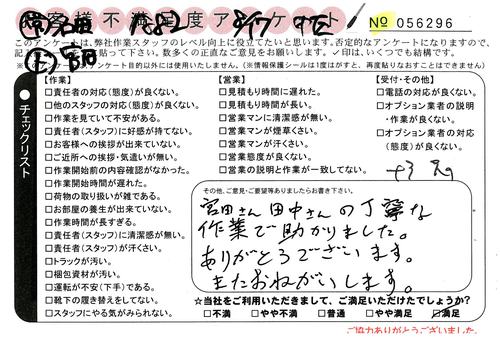 お客様不満足度アンケート
1882 8/17
№ 056296
このアンケートは、弊社作業スタッフのレベル向上に役立てたいと思います。否定的なアンケートになりますので、
✓印は、いくつでも結構です。
チェックリスト
【作業】
□責任者の対応(態度)が良くない。
□他のスタッフの対応(態度)が良くない。
□作業を見ていて不安がある。
□責任者(スタッフ)に好感が持てない。
□お客様への挨拶が出来ていない。
□ご近所への挨拶・気遣いが無い。
□作業開始前の内容確認がなかった。
□作業開始時間が遅れた。
□荷物の取り扱いが雑である。
□お部屋の養生が出来ていない。
□作業時間が長すぎる。
□責任者(スタッフ)に清潔感が無い。
□責任者(スタッフ)が汗くさい。
□トラックが汚い。
□梱包資材が汚い。
□運転が不安(下手)である。
□靴下の履き替えをしてない。
□スタッフにやる気がみられない。
【営業】
□見積もり時間に遅れた。
□見積もり時間が長い。
□営業マンに清潔感が無い。
□営業マンが煙草くさい。
□営業マンが汗くさい。
□営業態度が良くない。
□営業の説明と作業が一致してない。
【受付・その他】
□電話の対応が良くない。
□オプション業者の説明
・作業が良くない。
□オプション業者の対応
(態度)が良くない。
その他、ご意見・ご要望等ありましたらお書き下さい。
宮田さん田中さんの丁寧な
作業で助かりました。
ありがとうございます。
またおねがいします。
☆当社をご利用いただきまして、ご満足いただけたでしょうか?
□不満 □やや不満 □普通 □やや満足 ☑満足
ご協力ありがとうございました。